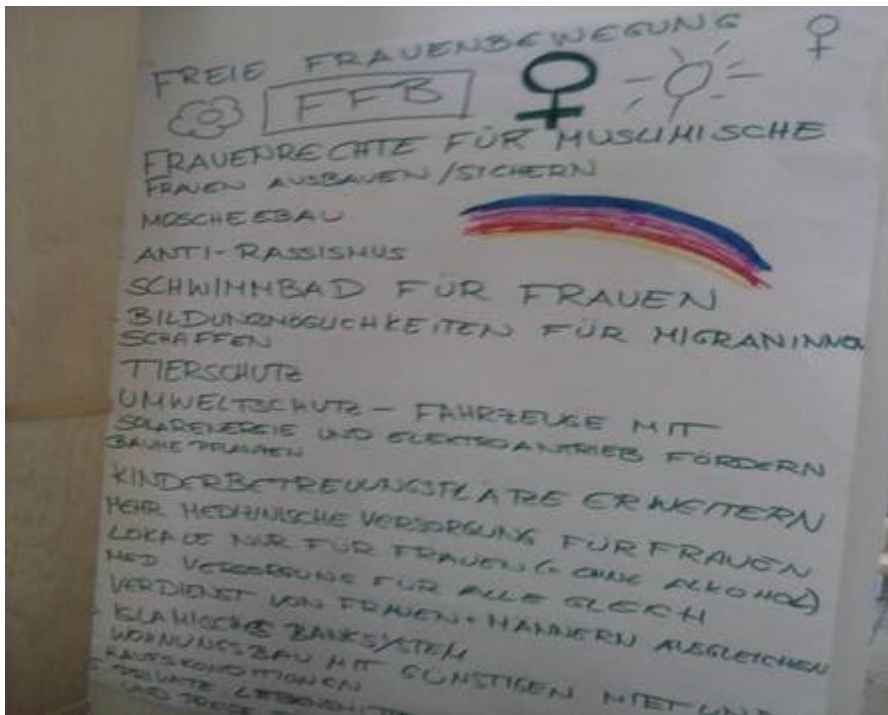 FREIE FRAUENBEWEGUNG
FFB
FRAUENRECHTE FÜR MUSLIMISCHE
FRAUEN AUSBAUEN/SICHERN
MOSCHEEBAU
ANTI-RASSISMUS
SCHWIMMBAD FÜR FRAUEN
- BILDUNGSMÖGLICHKEITEN FÜR MIGRANINNEN
SCHAFFEN
TIERSCHUTZ
UMWELTSCHUTZ - FAHRZEUGE MIT
SOLARENERGIE UND ELEKTROANTRIEB FÖRDERN
BÄUME PFLANZEN
KINDERBETREUUNGSPLÄTZE ERWEITERN
MEHR MEDIZINISCHE VERSORGUNG FÜR FRAUEN
LOKALE NUR FÜR FRAUEN (- OHNE ALKOHOL)
MED VERSORGUNG FÜR ALLE GLEICH
VERDIENST VON FRAUEN + MÄNNERN AUSGLEICHEN
- ISLAMISCHES BANKSYSTEM
WOHNUNGSBAU MIT GÜNSTIGEN MIET UND
KAUFSKONDITIONEN
PRIVATE
UND PREISE